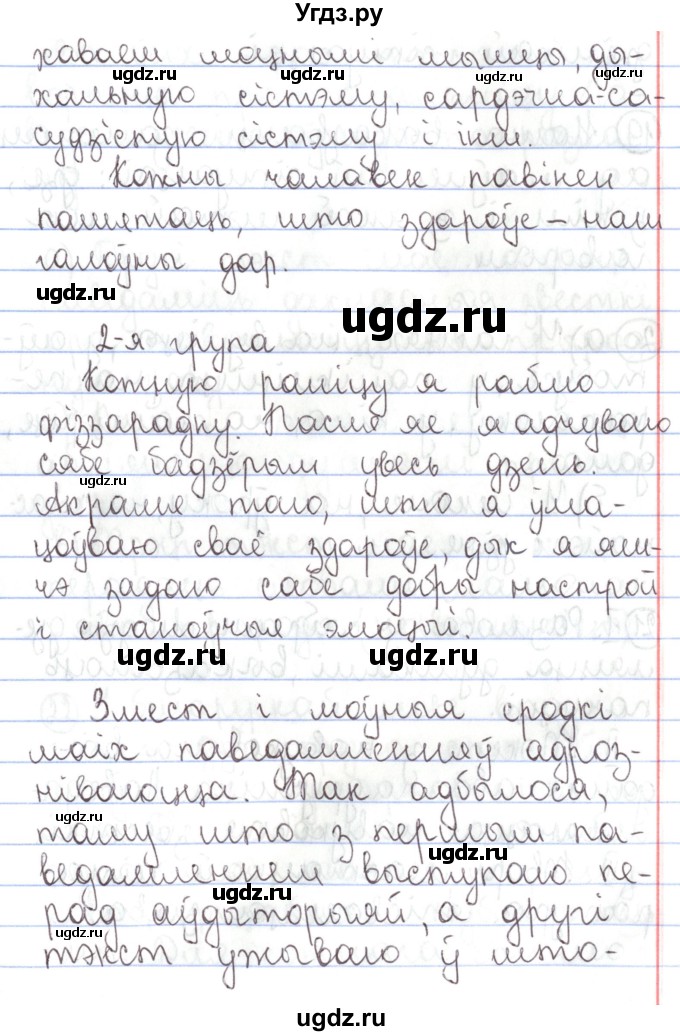 Угдз.ру
хаваем моцнымі мышцы, ды-
ugdz.ru ugdz.ru
хальную сістэму, сардэчна-са-
судзістую сістэму і інш.
Кожны чалавек павінен
памятаць, што здароўе – наш
галоўны дар.
ugdz.ru
ugdz.ru
2-я група
Кожную раніцу я раблю
фіззарадку. Пасля яе я адчуваю
сябе бадзёрым увесь дзень.
ugdz.ru
Акрамя таго, што я ўма-
цоўваю сваё здароўе, дык я яш-
чэ задаю сабе добры настрой
і станоўчыя эмоцыі.
ugdz.ru ugdz.ru
Змест і моўныя сродкі
маіх паведамленняў адроз-
ніваюцца. Так адбылося,
ugdz.ru
таму што з першым па-
ugdz.ru
ведамленнем выступаю пе-
ugdz.ru
рад аўдыторыяй, а другі
ugdz.ru
тэкст ужываю ў што-
ugdz.ru